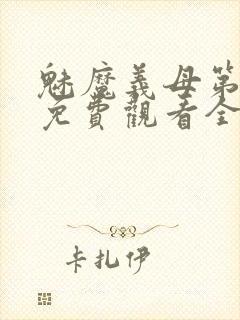 魅魔義母第
免費觀看全
卡扎伊